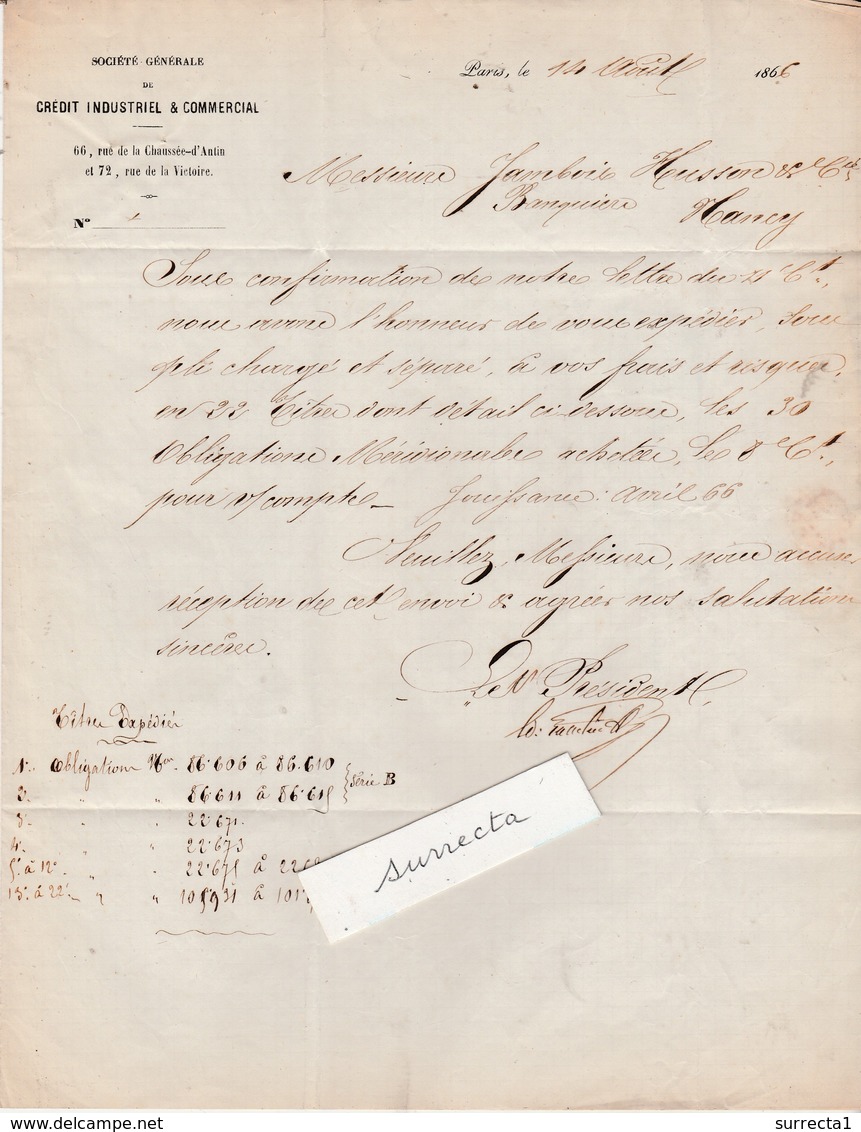 SOCIÉTÉ GÉNÉRALE
DE
CRÉDIT INDUSTRIEL & COMMERCIAL
66, rue de la Chaussée-d'Antin
et 72, rue de la Victoire.
N°
Paris, le 14 Août 1866
Messieurs Jambois Husson & Cie
Banquiers Nancy
Sous confirmation de notre lettre du Ct,
nous avons l'honneur de vous expédier, sous
pli chargé et séparé, à vos frais et risques,
en 22 Titres dont détail ci-dessous, les 30
Obligations Méridionales achetées, le 8 Ct,
pour v/ compte_ Jouissance: avril 66
Veuillez, Messieurs, nous accuser
réception de cet envoi & agréer nos salutations
sincères.
Le Président,
Titres Expédiés
1°. Obligations Nos. 86.606 à 86.610
2°. " " 86.611 à 86.615 } Série B
3°. " " 22.671.
4°. " " 22.673
5°. à 12°. " " 22.675 à 226
13°. à 22°. " " 105931 à
surrecta
www.delcampe.net
surrecta1